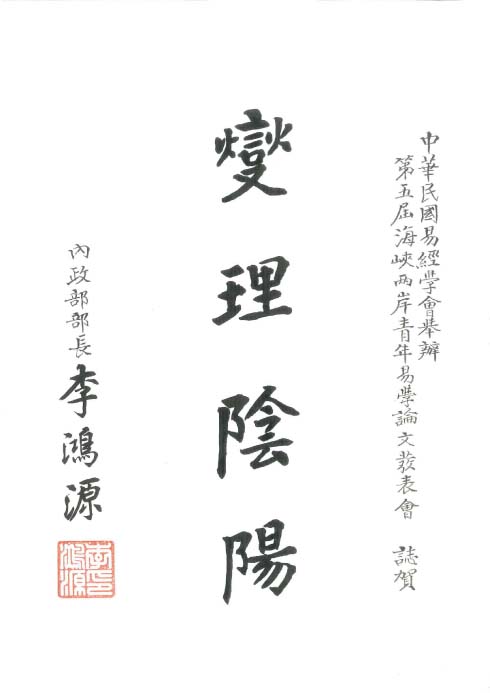 中華民國易經學會舉辦
第五屆海峽兩岸青年易學論文發表會 誌賀
燮理陰陽
內政部部長 李鴻源
李鴻源印